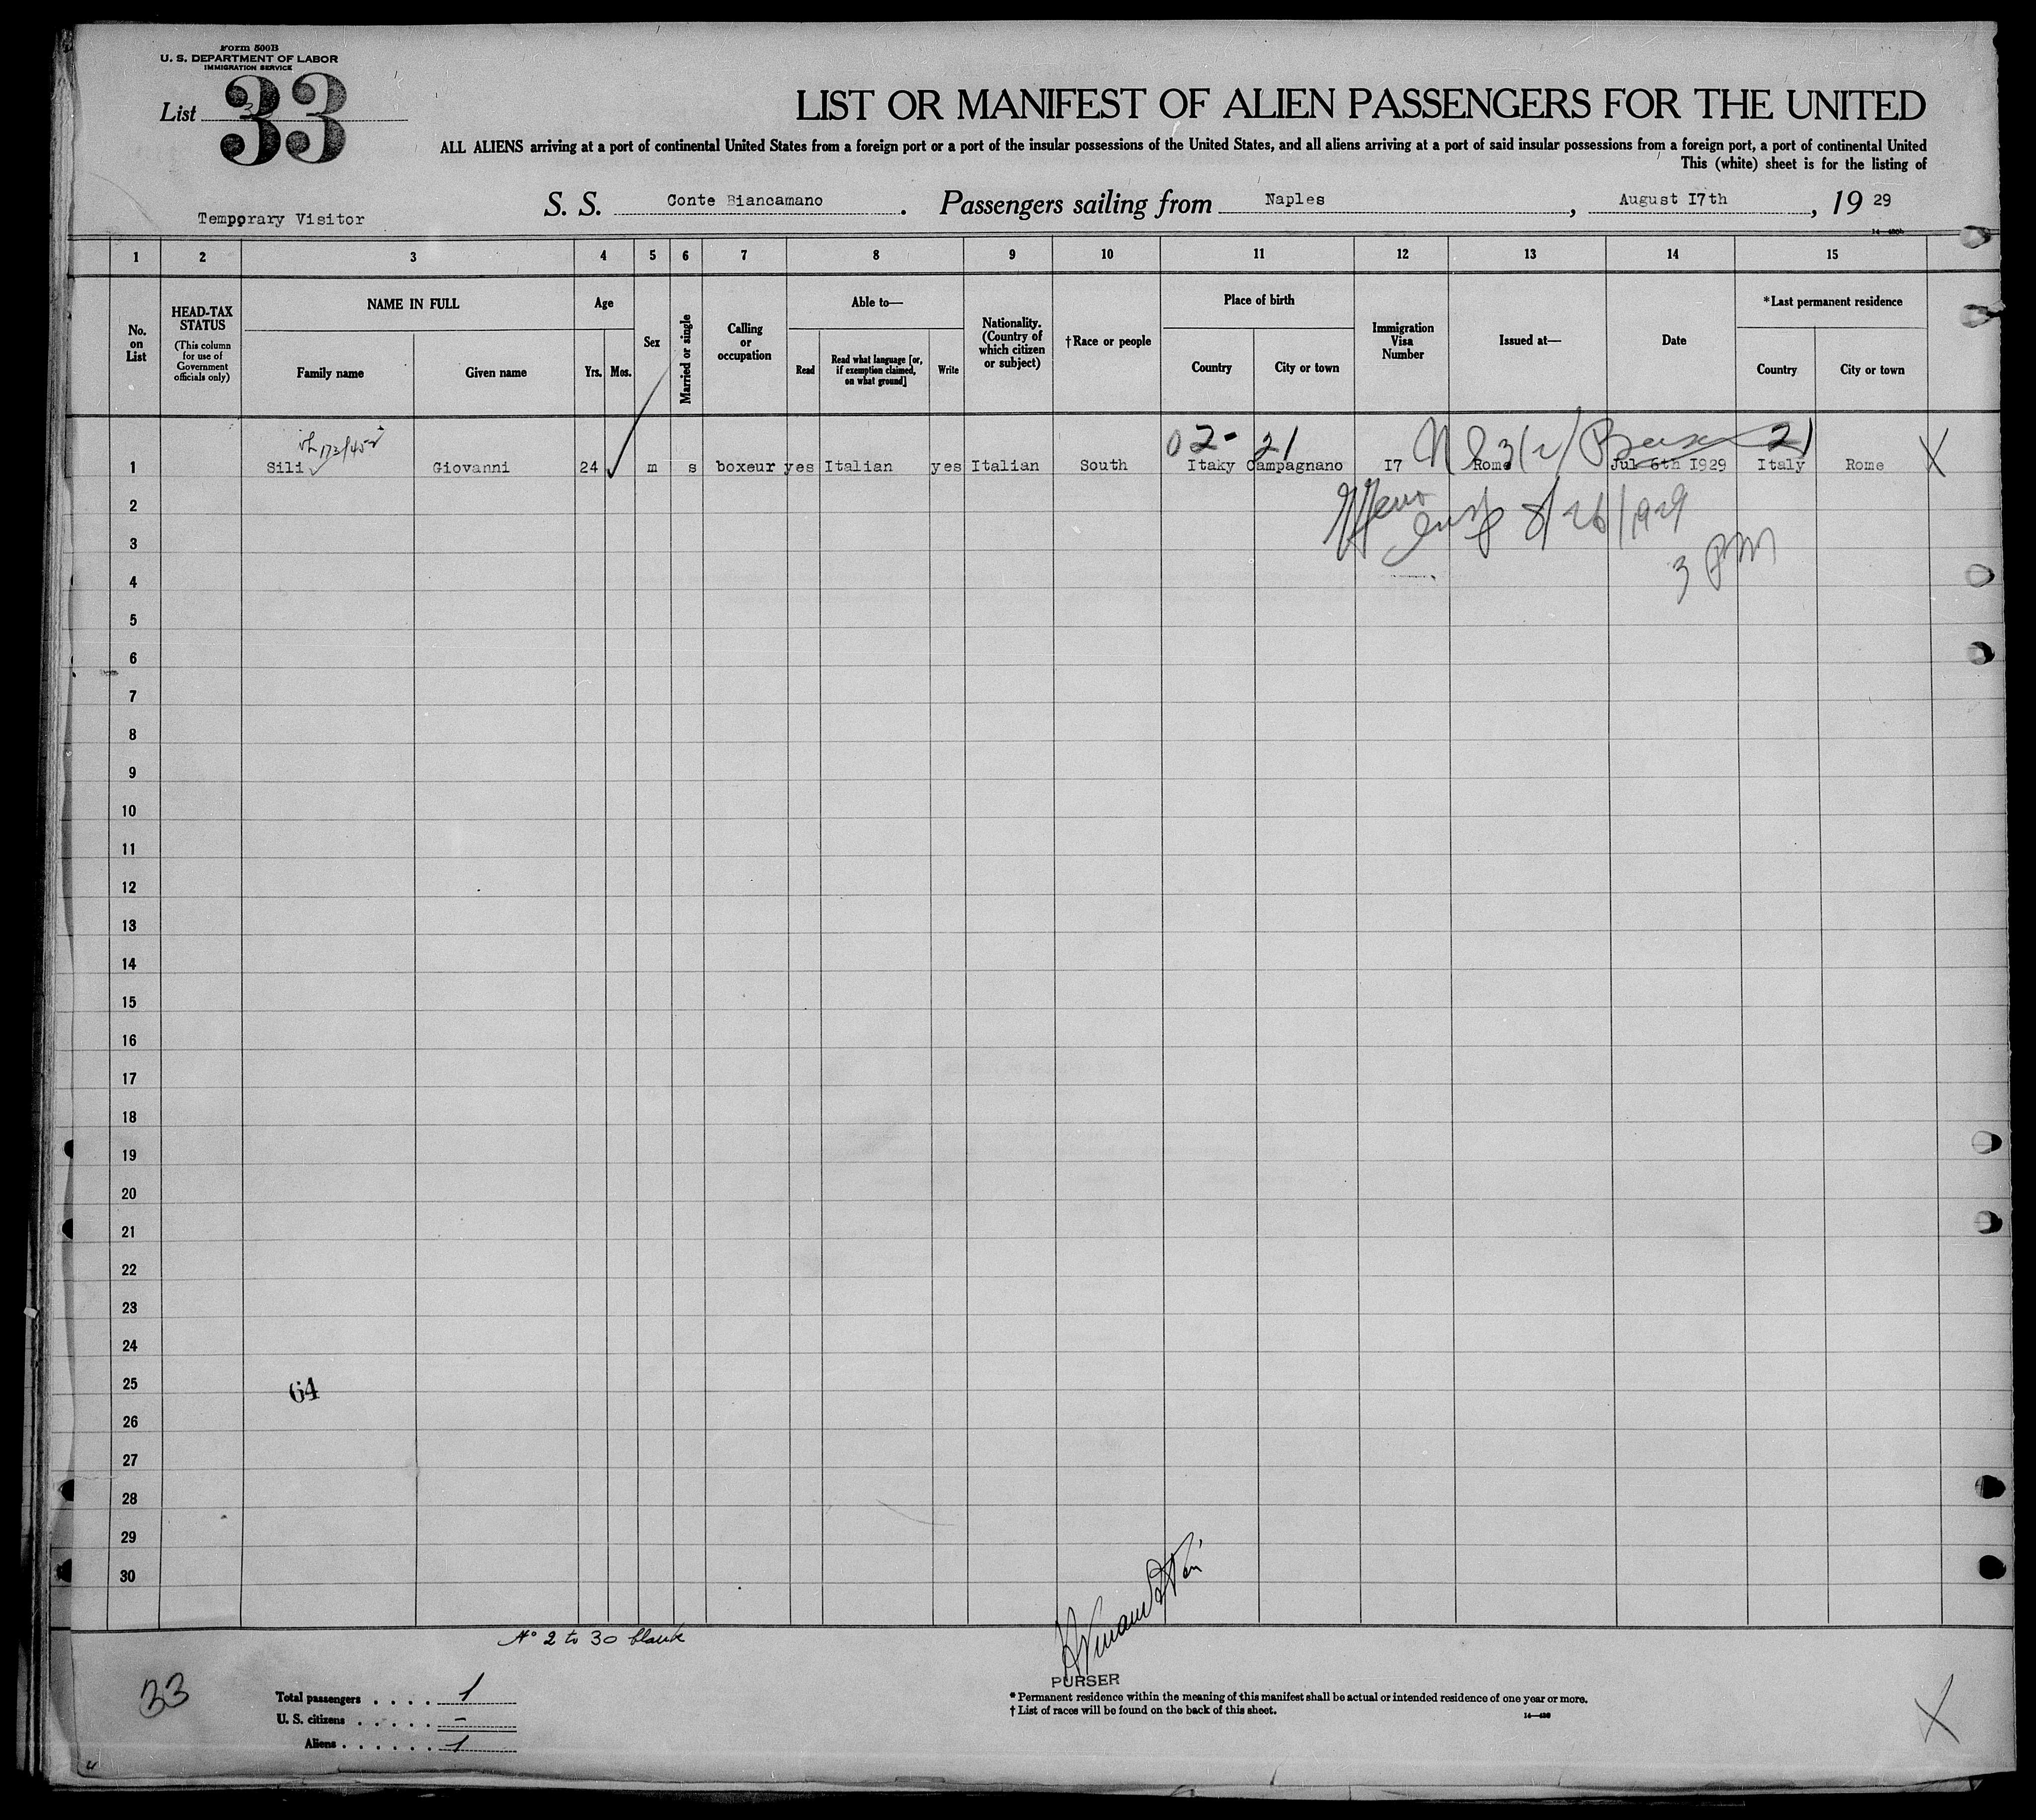 Form 500B
U. S. DEPARTMENT OF LABOR
IMMIGRATION SERVICE
List 3
33
LIST OR MANIFEST OF ALIEN PASSENGERS FOR THE UNITED
ALL ALIENS arriving at a port of continental United States from a foreign port or a port of the insular possessions of the United States, and all aliens arriving at a port of said insular possessions from a foreign port, a port of continental United
This (white) sheet is for the listing of
S. S. Conte Biancamano. Passengers sailing from Naples, August I7th, 19 29
Temporary Visitor
1 2 3 4 5 6 7 8 9 10 11 12 13 14 15
No. on List
HEAD-TAX STATUS
(This column for use of Government officials only)
NAME IN FULL
Family name
Given name
Age
Yrs. Mos.
Sex
Married or single
Calling or occupation
Able to—
Read
Read what language [or, if exemption claimed, on what ground]
Write
Nationality. (Country of which citizen or subject)
†Race or people
Place of birth
Country
City or town
Immigration Visa Number
Issued at—
Date
*Last permanent residence
Country
City or town
02- 21 21
1 Sili Giovanni 24 m s boxeur yes Italian yes Italian South Itaky Campagnano I7 Rome Jul 6th I929 Italy Rome X
2
8/26/1929
3
3 PM
4
5
6
7
8
9
10
11
12
13
14
15
16
17
18
19
20
21
22
23
24
25
64
26
27
28
29
30
No 2 to 30 blank
33
PURSER
Total passengers . . . . 1
U. S. citizens . . . . . –
Aliens . . . . . . 1
* Permanent residence within the meaning of this manifest shall be actual or intended residence of one year or more.
† List of races will be found on the back of this sheet.
X